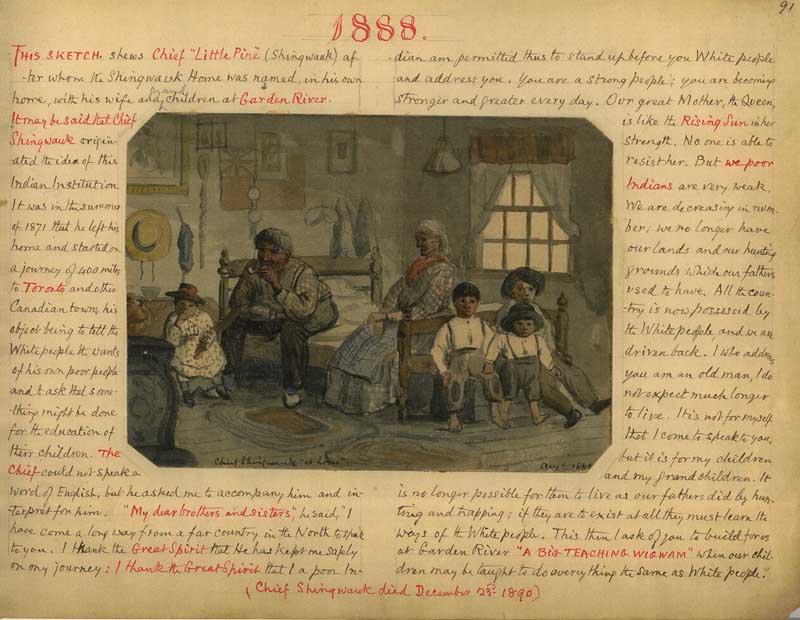 91
1888.
THIS SKETCH. shews Chief "Little Pine" (Shingwauk) af
-ter whom the Shingwauk Home was named, in his own
home, with his wife and grand children at Garden River.
It may be said that Chief
Shingwauk origin-
ated the idea of this
Indian Institution
It was in the summer
of 1871 that he left his
home and started on
a journey of 400 miles
to Toronto and other
Canadian towns, his
object being to tell the
White people the wants
of his own poor people
and to ask that some-
thing might be done
for the education of
their children. The
Chief could not speak a
word of English, but he asked me to accompany him and in-
terpret for him. "My dear brothers and sisters," he said, "I
have come a long way from a far country in the North to speak
to you. I thank the Great Spirit that He has kept me safely
on my journey: I thank the Great Spirit that I a poor In-
-dian am permitted thus to stand up before you White people
and address you. You are a strong people; you are becoming
stronger and greater every day. Our great Mother, the Queen,
is like the Rising Sun in her
strength. No one is able to
resist her. But we poor
Indians are very weak.
We are decreasing in num-
ber; we no longer have
our lands and our hunting
grounds which our fathers
used to have. All the coun-
-try is now possessed by
the White people and we are
driven back. I who address
you am an old man, I do
not expect much longer
to live. It is not for myself
that I come to speak to you,
but it is for my children
and my grandchildren. It
is no longer possible for them to live as our fathers did by hun-
ting and trapping; if they are to exist at all they must learn the
ways of the White people. This then I ask of you to build for us
at Garden River "A BIG TEACHING WIGWAM" when our chil-
dren may be taught to do everything the same as White people."
Chief Shingwauk "at home"
Aug
(Chief Shingwauk died December 23rd 1890)